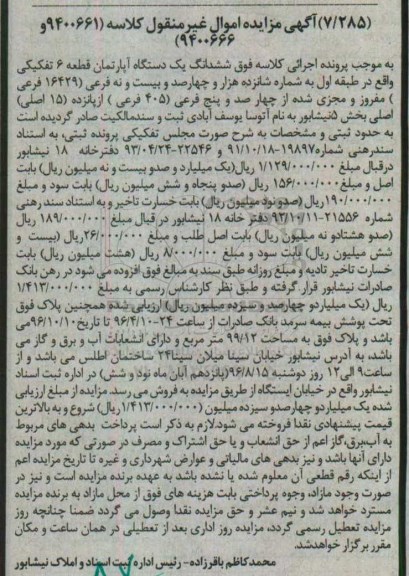 (۷/۲۸۵) آگهی مزایده اموال غیرمنقول کلاسه (۹۴۰۰۶۶۱و
۹۴۰۰۶۶۶)
به موجب پرونده اجرائی کلاسه فوق ششدانگ یک دستگاه آپارتمان قطعه ۶ تفکیکی
واقع در طبقه اول به شماره شانزده هزار و چهارصد و بیست و نه فرعی (۱۶۴۲۹ فرعی
) مفروز و مجزی شده از چهار صد و پنج فرعی (۴۰۵ فرعی ) ازپانزده (۱۵ اصلی)
اصلی بخش ۵نیشابور به نام آتوسا یوسف آبادی ثبت و سندمالکیت صادر گردیده است
به حدود ثبتی و مشخصات به شرح صورت مجلس تفکیکی پرونده ثبتی، به استناد
سندرهنی شماره۱۹۸۹۷-۹۱/۱۰/۱۸ و ۲۲۵۴۶-۹۳/۰۴/۲۴ دفترخانه ۱۸ نیشابور
درقبال مبلغ ۱/۱۲۹/۰۰۰/۰۰۰ ریال(یک میلیارد و صدو بیست و نه میلیون ریال) بابت
اصل و مبلغ۱۵۶/۰۰۰/۰۰۰ ریال (صدو پنجاه و شش میلیون ریال) بابت سود و مبلغ
۱۹۰/۰۰۰/۰۰۰ریال (صدو نود میلیون ریال) بابت خسارت تاخیر و به استناد سند رهنی
شماره ۲۱۵۵۶-۹۲/۱۰/۱۱ دفتر خانه ۱۸ نیشابور در قبال مبلغ ۱۸۹/۰۰۰/۰۰۰ ریال
(صدو هشتادو نه میلیون ریال) بابت اصل طلب و مبلغ ۲۶/۰۰۰/۰۰۰ریال (بیست و
شش میلیون ریال) بابت سود و مبلغ ۸/۰۰۰/۰۰۰ ریال (هشت میلیون ریال) بابت
خسارت تاخیر تادیه و مبلغ روزانه طبق سند به مبالغ فوق افزوده می شود در رهن بانک
صادرات نیشابور قرار گرفته و طبق نظر کارشناس رسمی به مبلغ ۱/۴۱۳/۰۰۰/۰۰۰
ریال (یک میلیاردو چهارصد و سیزده میلیون ریال) ارزیابی شده همچنین پلاک فوق
تحت پوشش بیمه سرمد بانک صادرات از ساعت ۲۴-۹۶/۴/۱۰ تا تاریخ۹۶/۱۰/۱۰می
باشد و پلاک فوق به مساحت ۹۹/۱۲ متر مربع و دارای انشعابات آب و برق و گاز می
باشد، به آدرس نیشابور خیابان سینا میلان سینا۲۴ ساختمان اطلس می باشد و از
ساعت۹ الی۱۲ روز دوشنبه ۹۶/۸/۱۵(پانزدهم آبان ماه نود و شش) در اداره ثبت اسناد
نیشابور واقع در خیابان ایستگاه از طریق مزایده به فروش می رسد. مزایده از مبلغ ارزیابی
شده یک میلیاردو چهارصدو سیزده میلیون (۱/۴۱۳/۰۰۰/۰۰۰ریال) شروع و به بالاترین
قیمت پیشنهادی نقدا فروخته می شود.لازم به ذکر است پرداخت بدهی های مربوط
به آب،برق،گاز اعم از حق انشعاب و یا حق اشتراک و مصرف در صورتی که مورد مزایده
دارای آنها باشد و نیز بدهی های مالیاتی و عوارض شهرداری و غیره تا تاریخ مزایده اعم
از اینکه رقم قطعی آن معلوم شده یا نشده باشد به عهده برنده مزایده است و نیز در
صورت وجود مازاد، وجوه پرداختی بابت هزینه های فوق از محل مازاد به برنده مزایده
مسترد خواهد شد و نیم عشر و حق مزایده نقدا وصول می گردد ضمنا چنانچه روز
مزایده تعطیل رسمی گردد، مزایده روز اداری بعد از تعطیلی در همان ساعت و مکان
مقرر برگزار خواهدشد.
محمدکاظم باقرزاده- رئیس اداره ثبت اسناد و املاک نیشابور